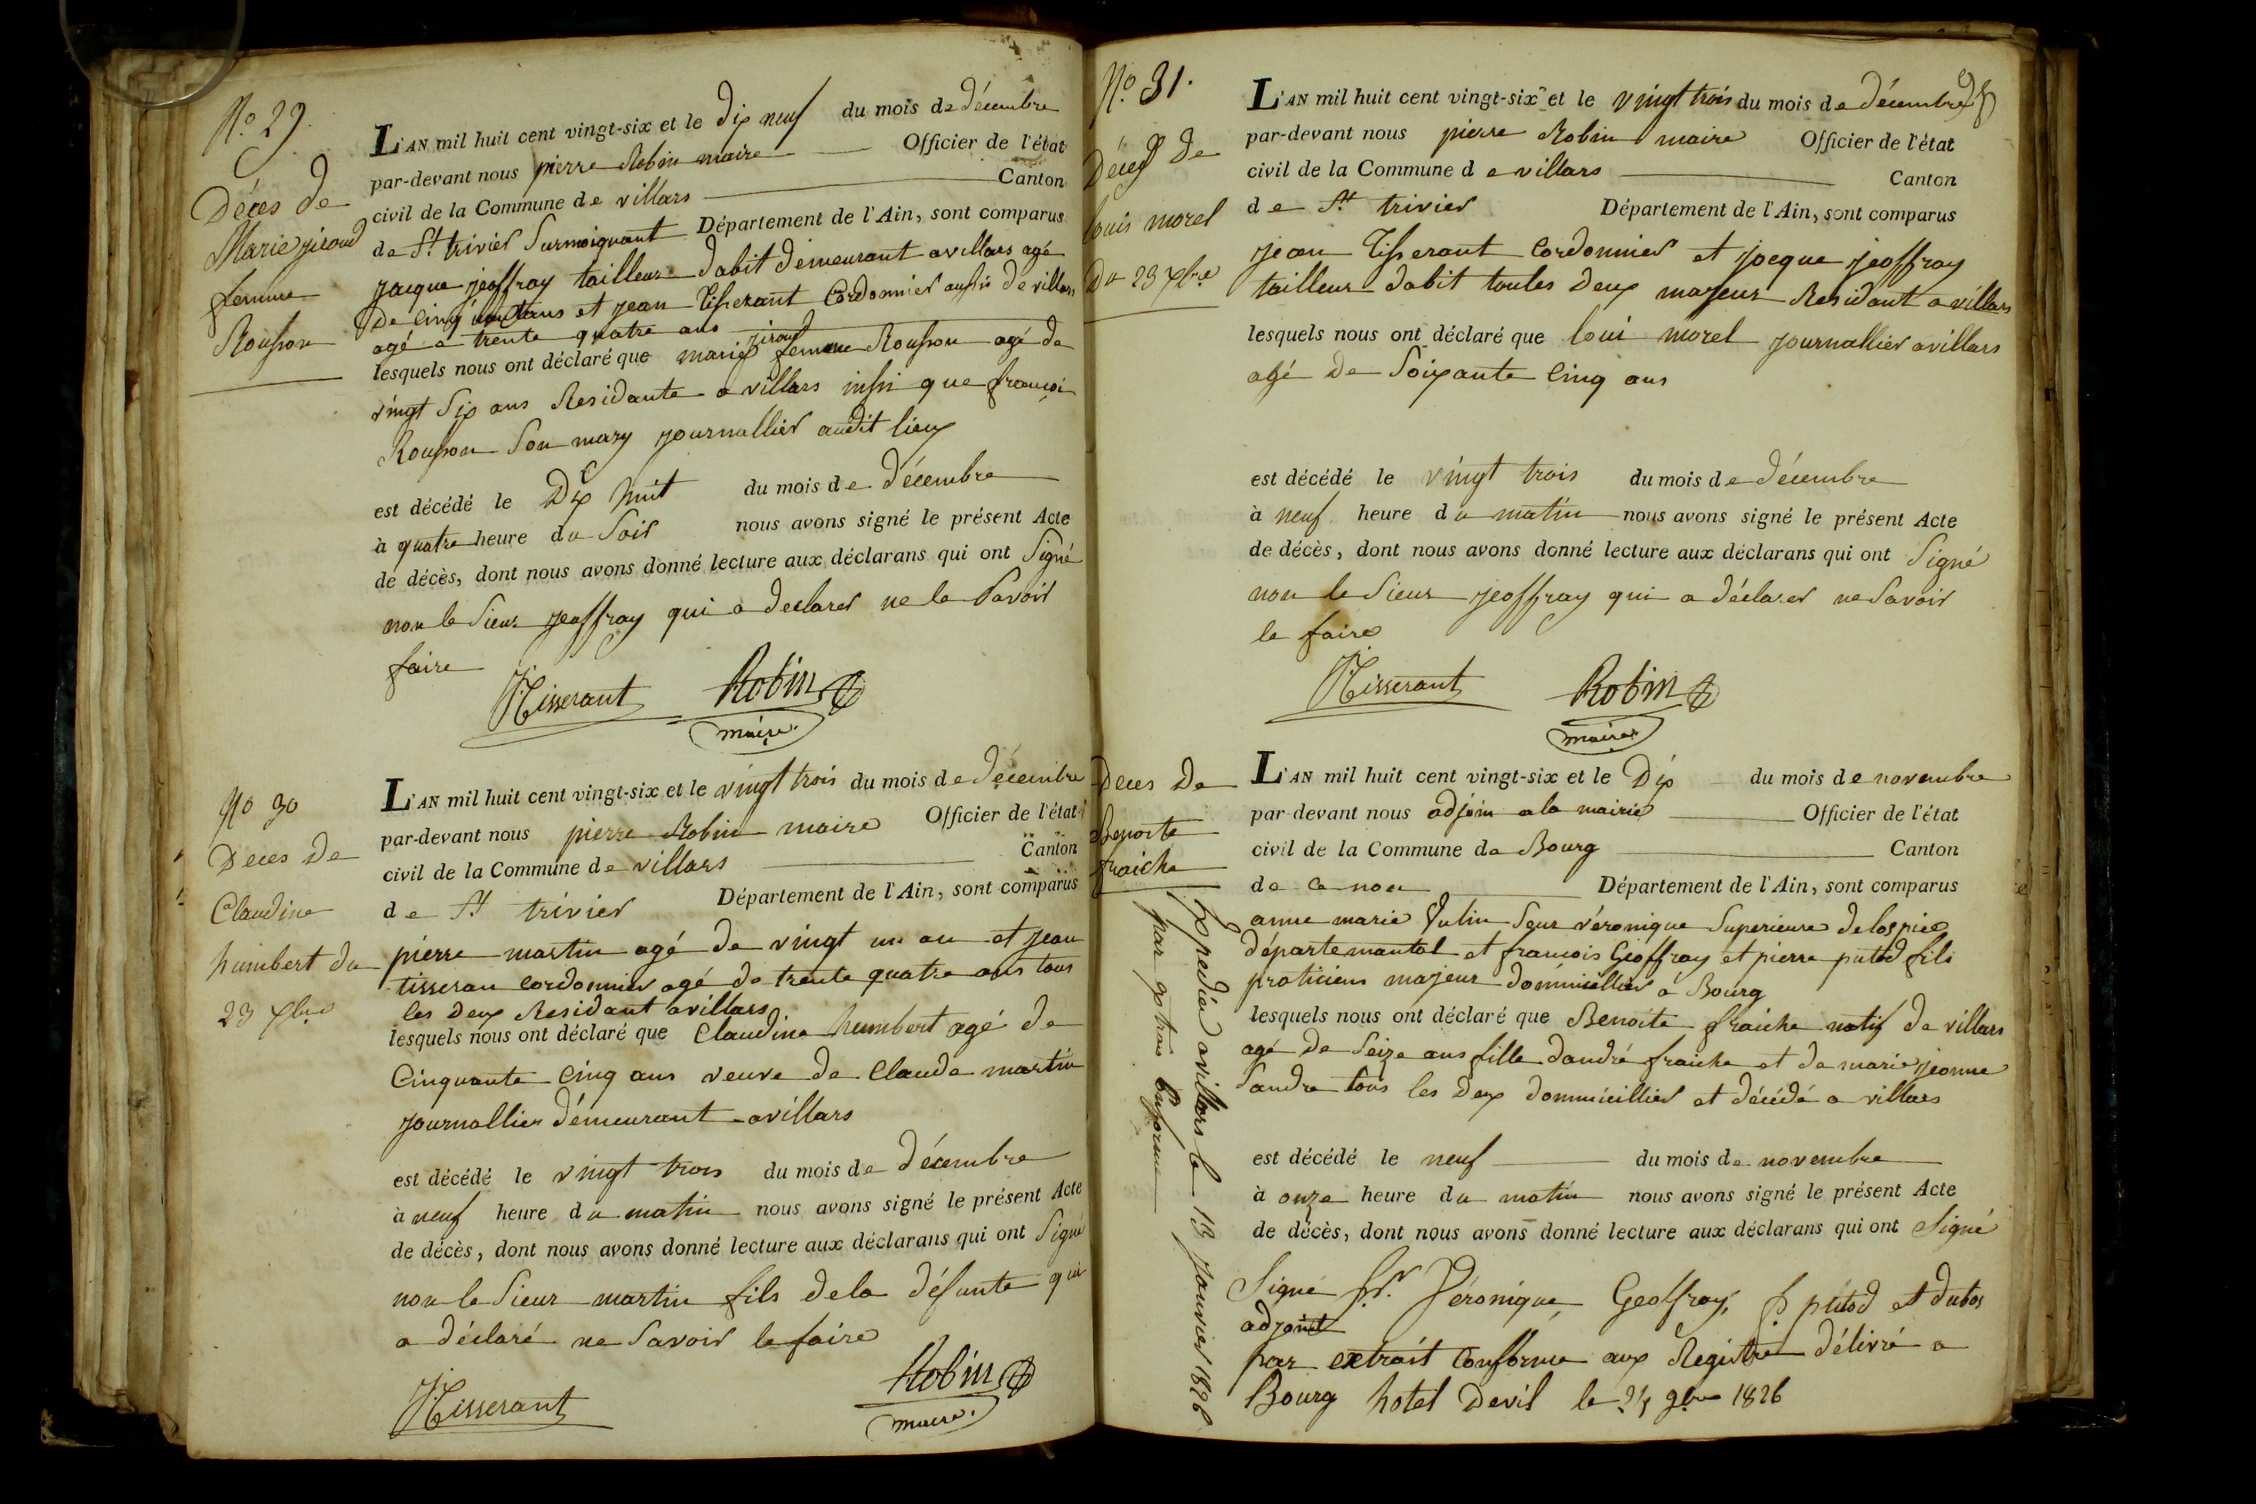 No. 29.
Décès de
Marie jiroud
femme
Rousson
L'AN mil huit cent vingt-six et le dix neuf du mois de décembre
par-devant nous pierre Robin maire Officier de l'état
civil de la Commune de villars Canton
de St trivier Surmoignant Département de l'Ain, sont comparus
jacque jeoffray tailleur dabit demeurant a villars agé
de cinquante ans et jean tisserant Cordonnier aussi de villars
agé a trente quatre ans
jiroud
lesquels nous ont déclaré que marie femme Rousson agé de
vingt six ans Residante a villars insi que françoi
Rousson Son mary journallier audit lieux
est décédé le Dix huit du mois de décembre
à quatre heure du Soir nous avons signé le présent Acte
de décès, dont nous avons donné lecture aux déclarans qui ont Signé
non le Sieur jeoffray qui a declarer ne le Savoir
faire
J Tisserant Robin
maire.
No 30
Deces de
Claudine
humbert du
23 xbre
L'AN mil huit cent vingt-six et le vingt trois du mois de décembre
par-devant nous pierre Robin maire Officier de l'état
civil de la Commune de villars Canton
de St trivier Département de l'Ain, sont comparus
pierre martin agé de vingt un an et jean
tisseran cordonnier agé de trente quatre ans tous
les deux Residant a villars
lesquels nous ont déclaré que Claudine humbert agé de
Cinquante Cinq ans veuve de Claude martin
journallier démeurant a villars
est décédé le vingt trois du mois de décembre
à neuf heure du matin nous avons signé le présent Acte
de décès, dont nous avons donné lecture aux déclarans qui ont Signé
non le Sieur martin fils dela défunte qui
a déclaré ne Savoir le faire
J Tisserant Robin
maire.
No. 31.
Décès de
louis morel
du 23 xbre
L'AN mil huit cent vingt-six et le vingt trois du mois de décembre
par-devant nous pierre Robin maire Officier de l'état
civil de la Commune de villars Canton
de St trivier Département de l'Ain, sont comparus
jean tisserant Cordonnier et jacque jeoffray
tailleur dabit toutes deux majeur Residant a villars
lesquels nous ont déclaré que loui morel journallier a villars
agé de Soixante Cinq ans
est décédé le vingt trois du mois de décembre
à neuf heure du matin nous avons signé le présent Acte
de décès, dont nous avons donné lecture aux déclarans qui ont Signé
non le Sieur jeoffray qui a déclarer ne Savoir
le faire
J Tisserant Robin
maire
Deces de
Benoite
fraiche
L'AN mil huit cent vingt-six et le Dix du mois de novembre
par-devant nous adjoin a la mairie Officier de l'état
civil de la Commune de Bourg Canton
de Département de l'Ain, sont comparus
anne marie Seur véronique Superieure delospice
départemantal et francois Geoffray et pierre putod fils
praticiens majeur dominiciliier a Bourg
lesquels nous ont déclaré que Benoite fraiche natif de villars
agé de Seize ans fille dandré fraiche et de marie jeanne
Sandre tous les deux dommicillier et décédé a villars
est décédé le neuf du mois de novembre
à onze heure du matin nous avons signé le présent Acte
de décès, dont nous avons donné lecture aux déclarans qui ont Signé
Signé Sr. Véronique Geoffray, putod et dubos
adjoint
par extrait Conforme aux Registre délivré a
Bourg hotel Devil le 24 9bre 1826
Expedié a villars le 13 janvier 1826
par Conforme